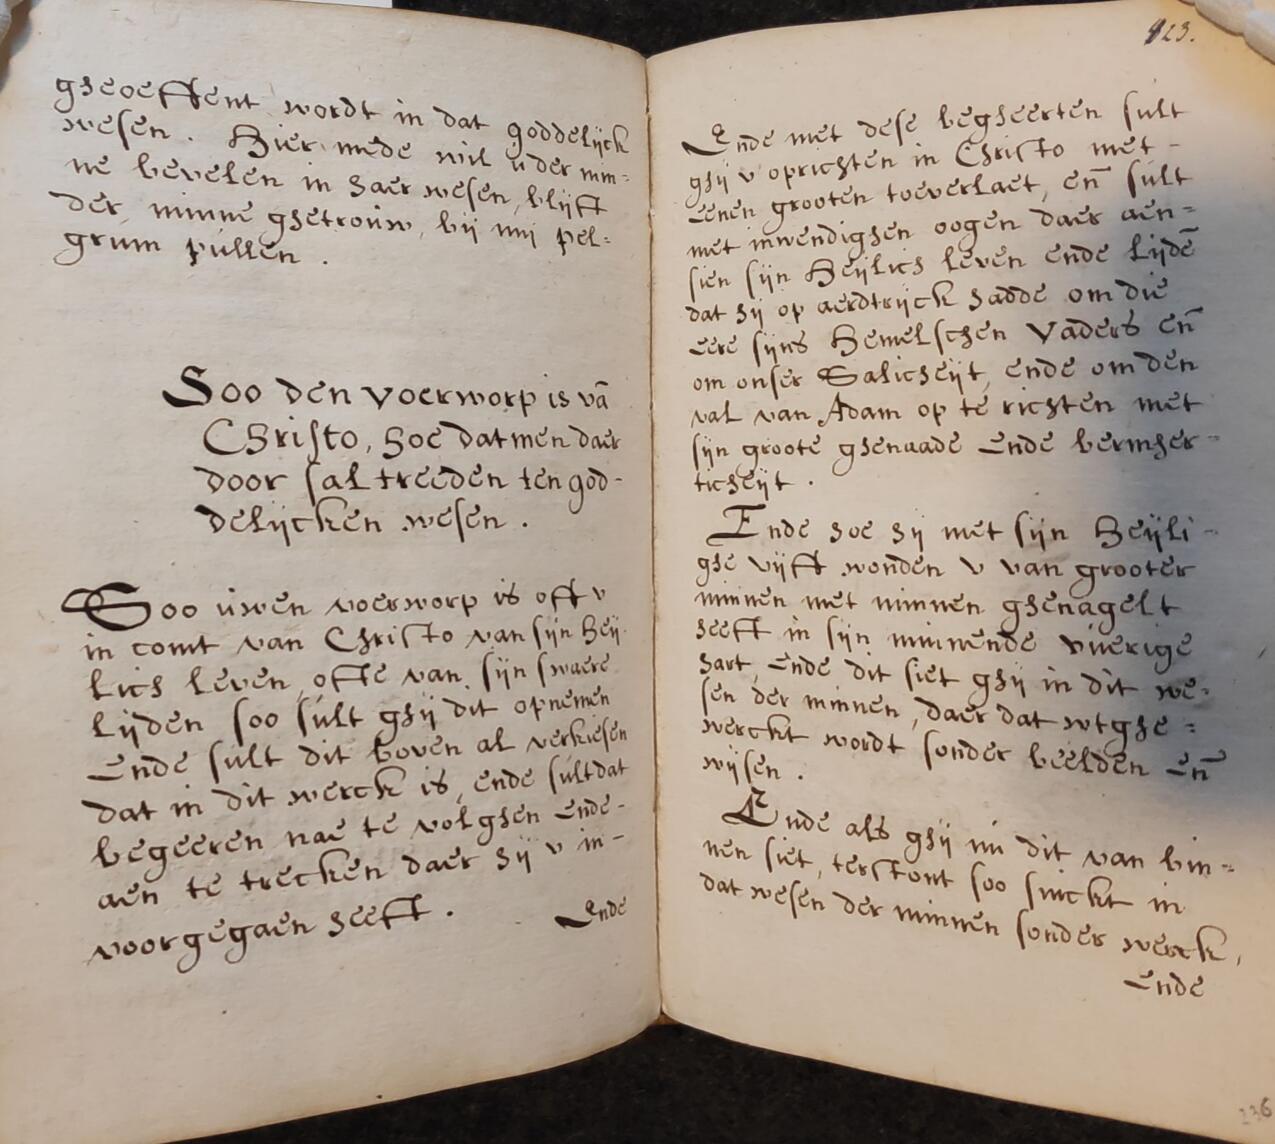 gheoeffent wordt in dat goddelijck
wesen. Hier mede wil u der min=
ne bevelen in haer wesen, blijft
der minne ghetrouw, bij mij pel=
grum pullen.
Soo den voerworp is vā
Christo, hoe datmen daer
door sal treeden ten god-
delijcken wesen.
Soo uwen voerworp is oft v
in comt van Christo van sijn heij
lich leven, ofte van sijn swaere
lijden soo sult ghij dit opnemen
Ende sult dit boven al verkiesen
dat in dit werck is, ende sult dat
begeeren nae te volghen ende-
aen te trecken daer hij v in-
voorgegaen heeft.
Ende
123.
Ende met dese begheerten sult
ghij v oprichten in Christo met-
eenen grooten toeverlaet, en̄ sult
met inwendighen oogen daer aen=
sien sijn heijlich leven ende lijdē
dat hij op aerdtrijck hadde om die
eere sijns hemelschen Vaders en̄
om onser Salicheijt, ende om den
val van Adam op te richten met
sijn groote ghenaade ende bermher-
ticheijt.
Ende hoe hij met sijn heijli-
ghe vijft wonden v van grooter
minnen met minnen ghenagelt
heeft in sijn minnende vuerige
hart, ende dit siet ghij in dit we=
sen der minnen, daer dat wtghe=
werckt wordt sonder beelden en̄
wijsen.
Ende als ghij nu dit van bin=
nen siet, terstont soo sinckt in
dat wesen der minnen sonder werck,
Ende
236